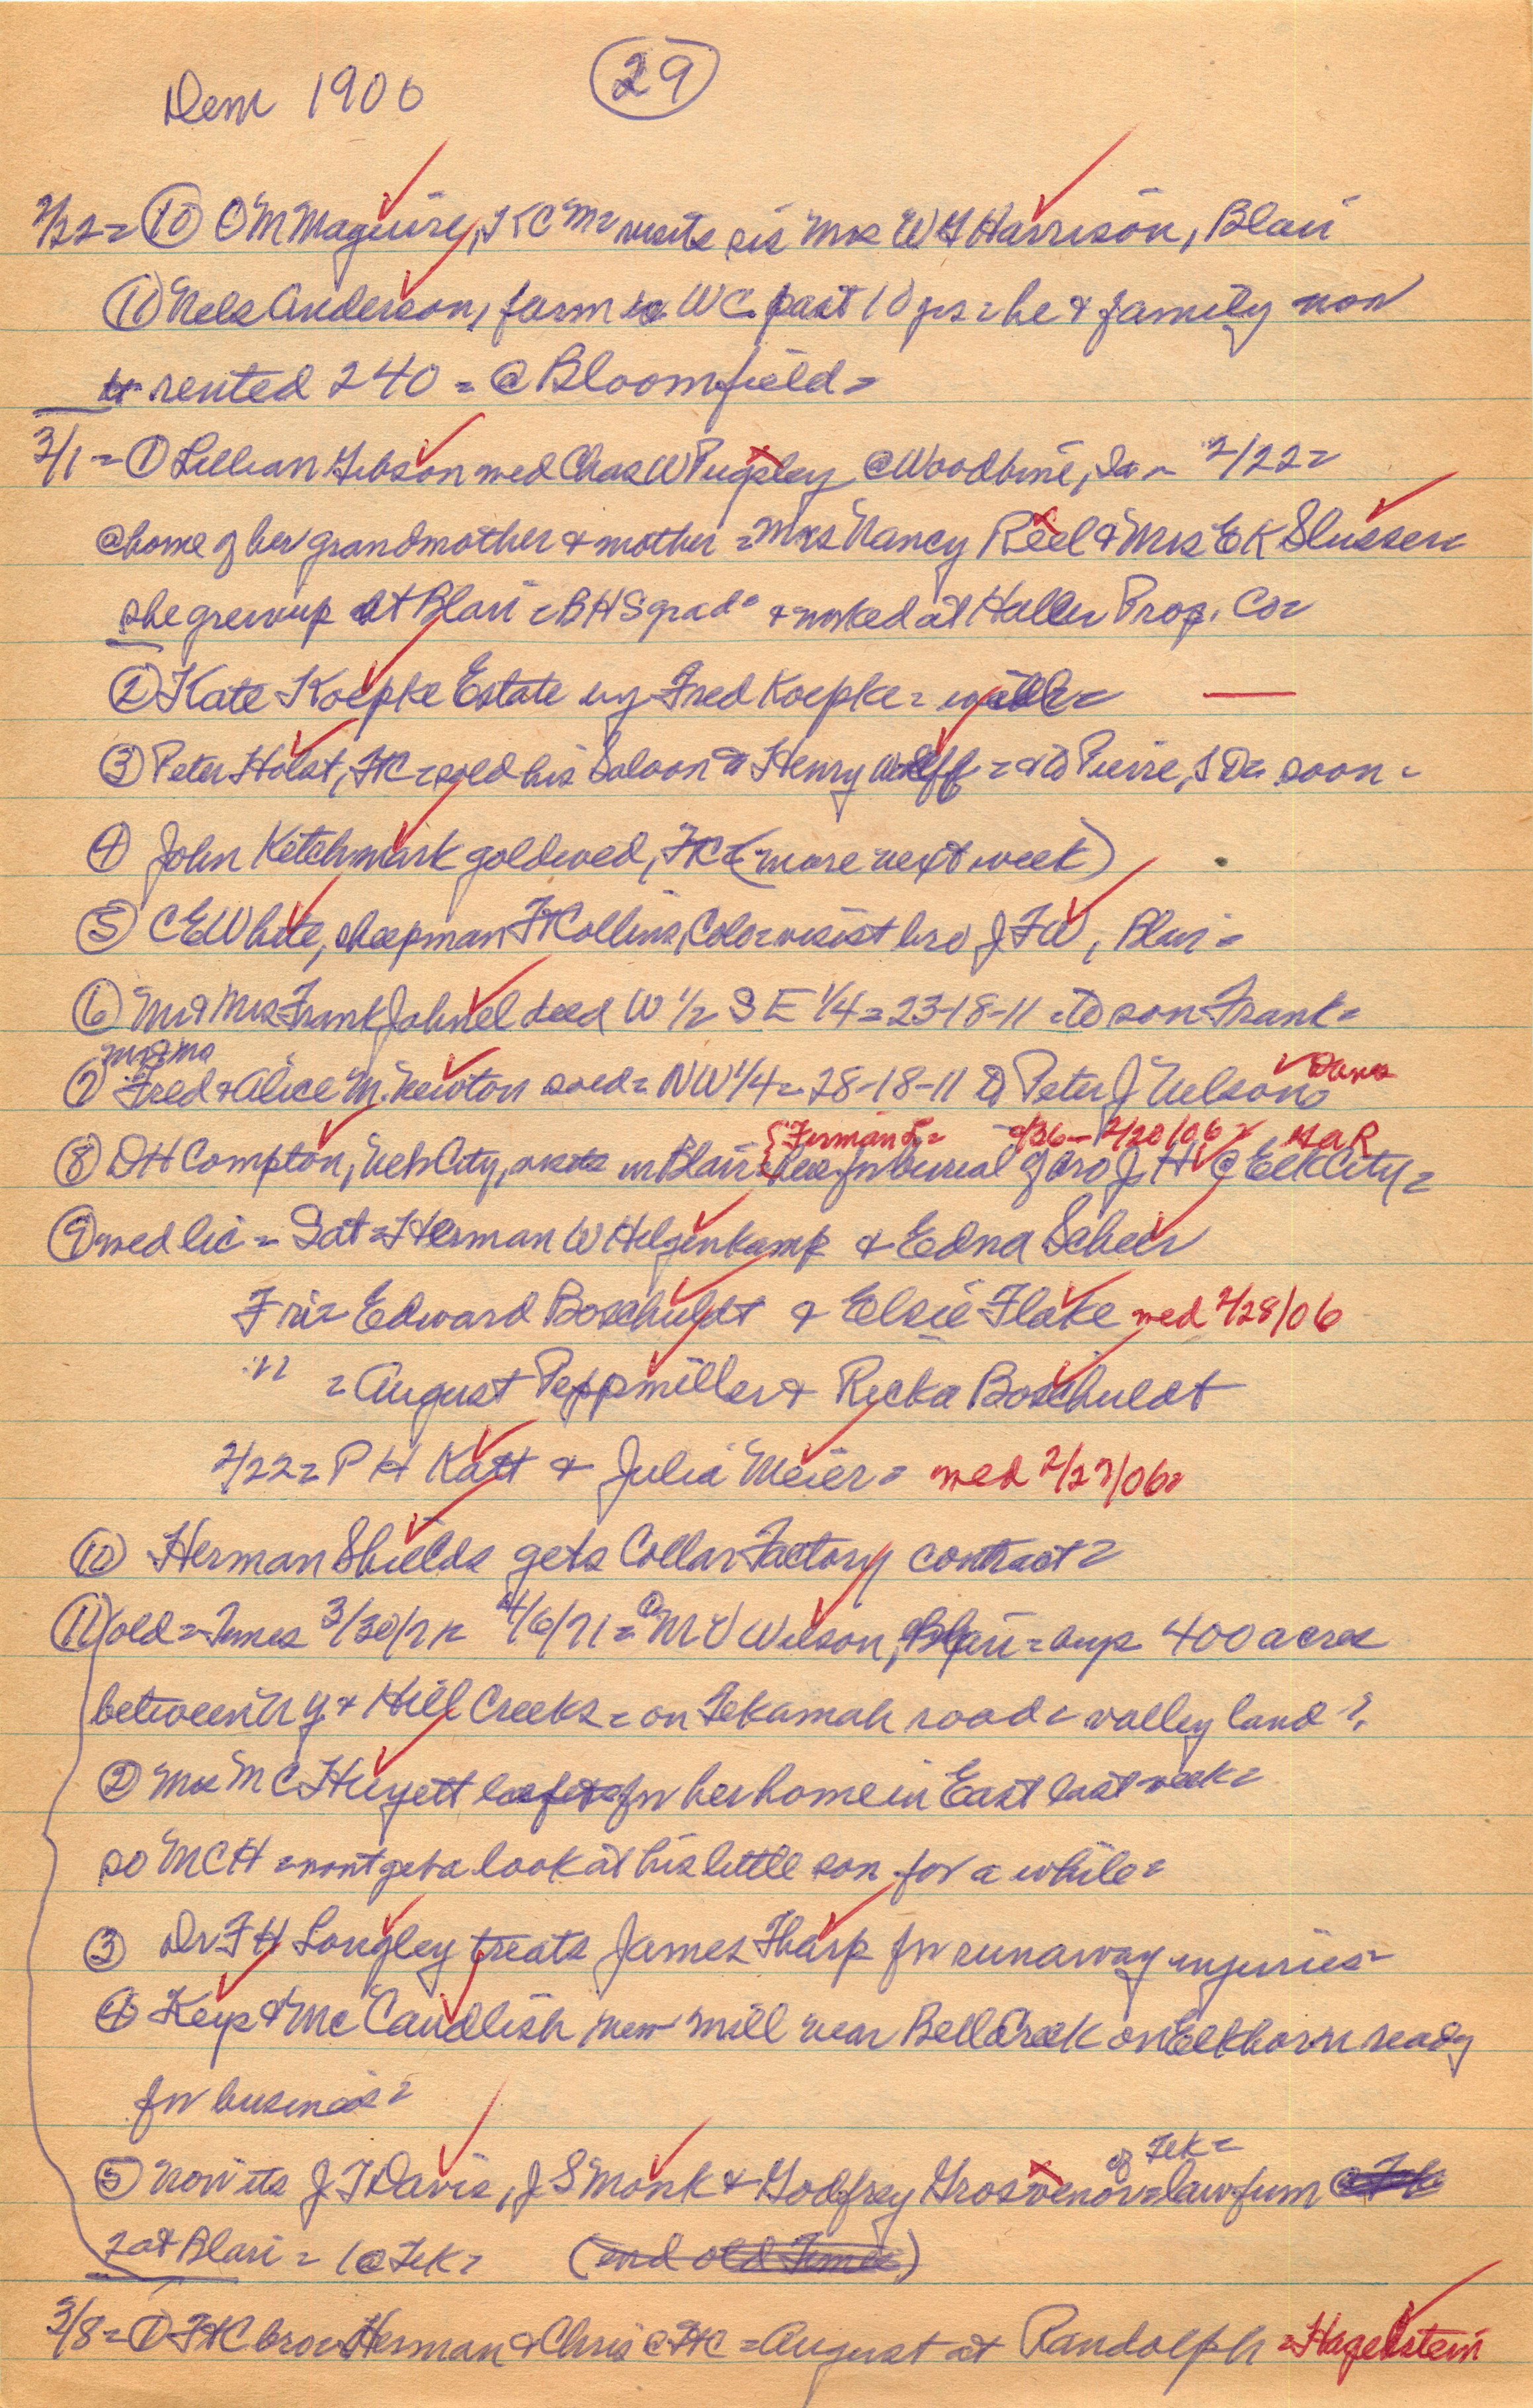 Dem 1906 29
2/22 = 10 O M Maguire, K C Mo visits sis Mrs W H Harrison, Blair
10 Nels Anderson, farm WC past 10 yrs = he & family now
rented 240 = @ Bloomfield =
3/1 = 1 Lillian Gibson wed Chas W Pugsley @ Woodbine, Ia 2/22 =
@ home of her grandmother & mother = Mrs Nancy Reel & Mrs E K Slusser
she grew up at Blair = BHS grad & worked at Haller Prop. Co =
2 Kate Koepke Estate by Fred Koepke =
3 Peter Holst, FtC = sold his Saloon to Henry Wulff = & to Pierre, S Da soon =
4 John Ketchmark gold wed, FtC = (more next week)
5 C E White, sheepman Ft Collins, Colo = visist bro J F W, Blair =
6 Mr & Mrs Frank Jahnel deed W 1/2 S E 1/4 = 23-18-11 = to son Frank =
Mr & Mrs
7 Fred & Alice M. Newton sold = NW 1/4 = 28-18-11 to Peter J Nelson Dana
{Fermando = 2/20/06 = GAR
8 D H Compton, Neb City, in Blair = here for burial of bro J H @ Elk City =
9 wed lic = Sat = Herman W Helgenkamp & Edna Scheer
Fri = Edward Boschuldt & Elsie Flake wed 2/28/06
" = August Peppmiller & Ricka Boschuldt
2/22 = P H Katt & Julia Meier = wed 2/27/06 =
10 Herman Shields gets Collar Factory contract =
11 old = Times 3/30/71 4/6/71 = 1 M V Wilson, Blair = buys 400 acres
between & Hill Creeks = on Tekamah road = valley land ?.
2 Mrs M C Huyett for her home in East last week =
so MCH = wont get a look at his little son for a while =
3 Dr F H Longley treats James Tharp for runaway injuries =
4 Keys & McCandlish new mill near Bell Creek on Elkhorn ready
for business =
of Tek =
5 Now its J T Davis, J S Monk & Godfrey Grosvenor = law firm
2 at Blair = 1 @ Tek = (end old Times)
3/8 = 1 FtC bros Herman & Chris @ FtC = August at Randolph = Hagenstein